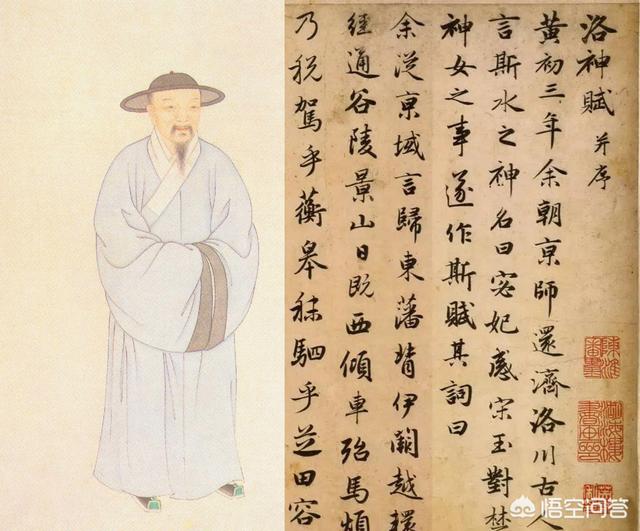 洛神賦 并序
黄初三年余朝京師還濟洛川古人
言斯水之神名曰宓妃感宋玉對楚
神女之事遂作斯賦其詞曰
余從京域言歸東藩背伊闕越轘
經通谷陵景山日既西傾車殆馬煩
乃税駕乎蘅皋秣駟乎芝田容
悟空问答